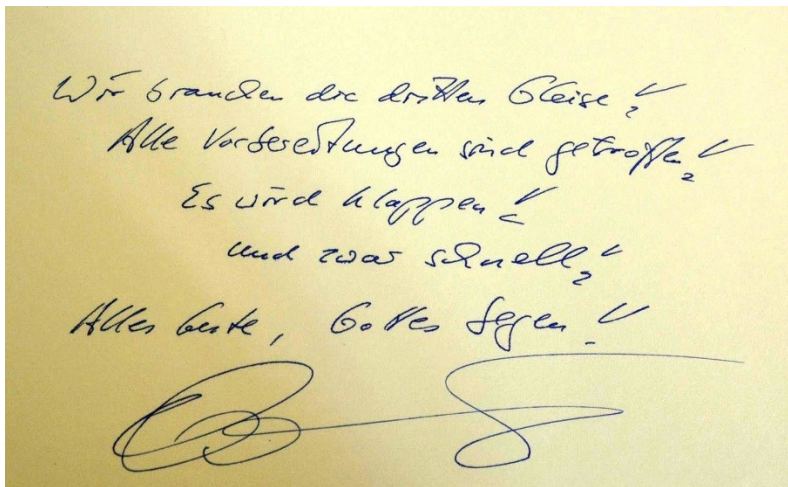 Wir brauchen die dritten Gleise!
Alle Vorbereitungen sind getroffen!
Es wird klappen!
und zwar schnell!
Alles Gute, Gottes Segen!